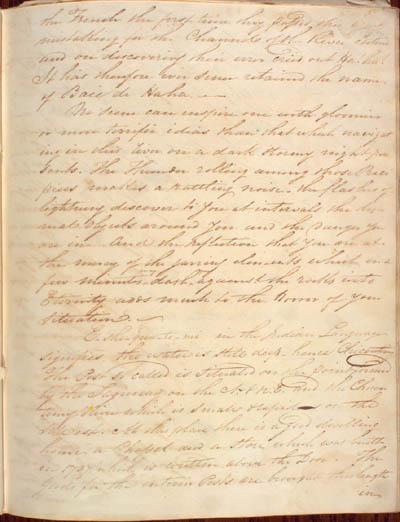 the French the first time they
mistaking for the Channel of the River
and on discovering their error cried out Ha. ha!
It has therefore ever since retained the name
of Baie de Haha. —
No scene can inspire one with gloomier
or more terrific ideas than that which navigat
ing in this River on a dark stormy night pre
sents. The Thunder rolling among those Preci
pices makes a rattling noise. the flashes of
lightning discover to You at intervals the dis
mal objects around You and the danger You
are in. And the reflection that You are at
the mercy of the jarring elements which in a
few minutes may dash against the rocks into
Eternity adds much to the Horror of your
Situation. —
in the Indian Language
signifies the water is still deep. hence Chicoutimi
The Post so called is situated on the
by the Saguenay on the N. & N.E. and the
River which is small & rapid on the
At this place there is a good dwelling
house a Chapel and a Store which was built
in as is written above the Door. The
for the interior Posts are brought this length
in